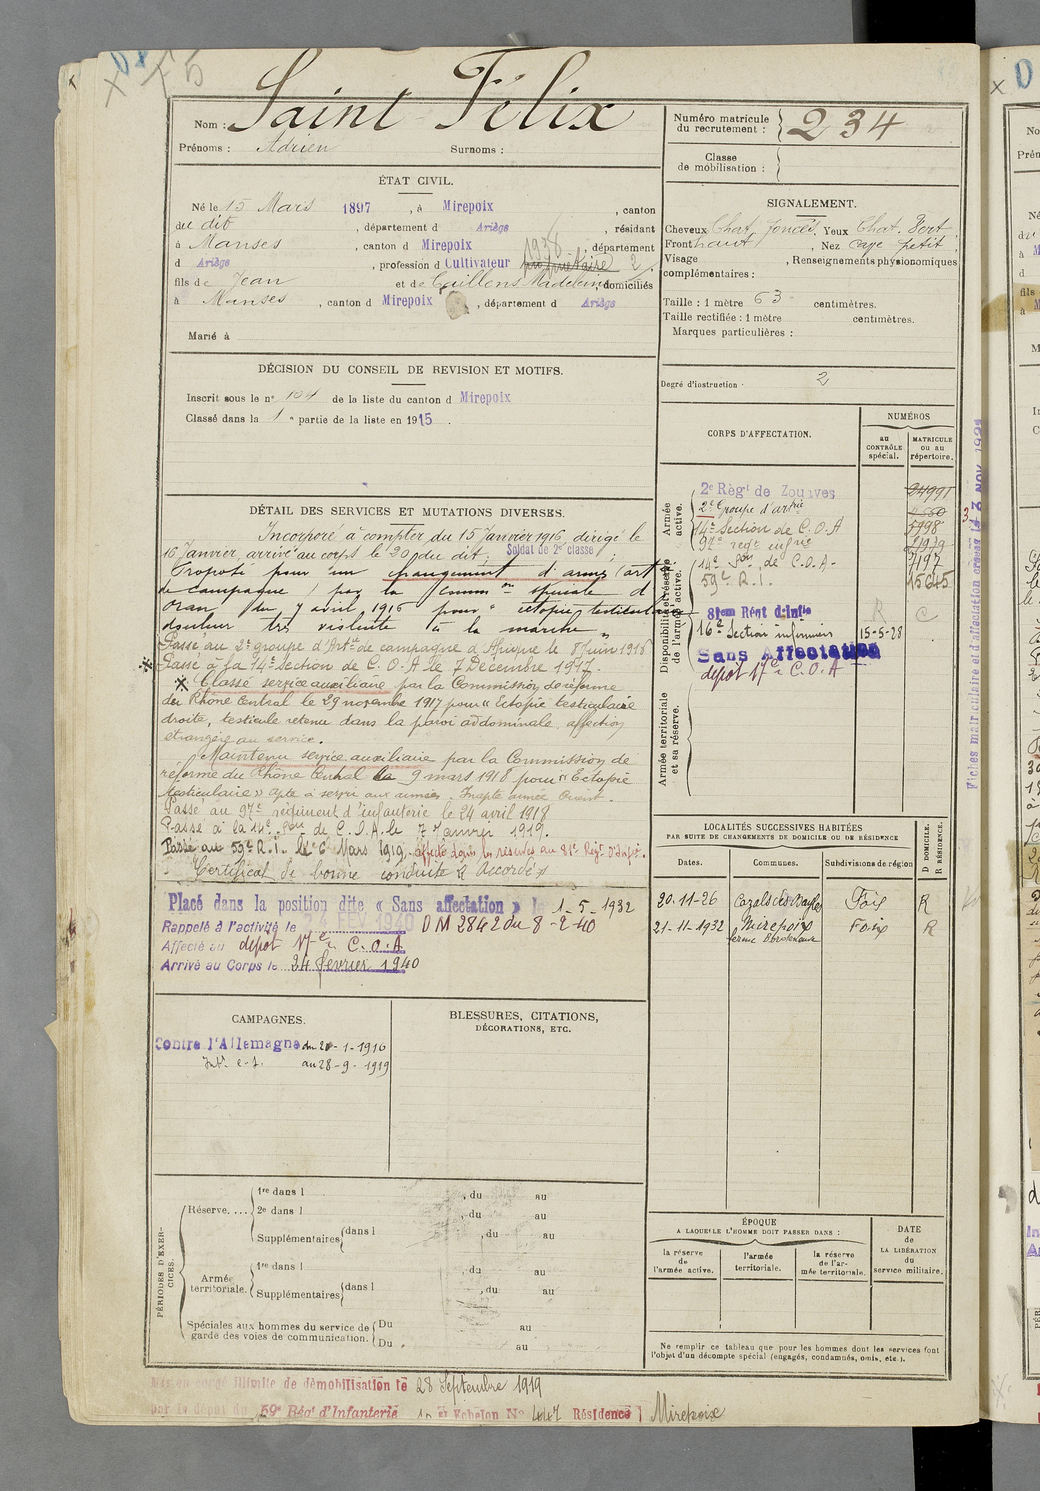 Nom : Saint Félix
Prénoms : Adrien Surnoms :
Numéro matricule du recrutement : 234
Classe de mobilisation :
ÉTAT CIVIL.
Né le 15 Mars 1897, à Mirepoix, canton
du dit, département d Ariège, résidant
à Manses, canton d Mirepoix, département
d Ariège, profession d Cultivateur propriétaire 2
1938
fils de Jean et de Caillens Madeleine domiciliés
à Manses, canton d Mirepoix, département d Ariège
Marié à
SIGNALEMENT.
Cheveux Chat. foncés, Yeux Chat. Vert,
Front haut, Nez cave petit,
Visage , Renseignements physionomiques
complémentaires :
Taille : 1 mètre 63 centimètres.
Taille rectifiée : 1 mètre centimètres.
Marques particulières :
Degré d'instruction : 2
DÉCISION DU CONSEIL DE REVISION ET MOTIFS.
Inscrit sous le n° 104 de la liste du canton d Mirepoix
Classé dans la 1e partie de la liste en 1915.
DÉTAIL DES SERVICES ET MUTATIONS DIVERSES.
Incorporé à compter du 15 Janvier 1916, dirigé le
16 Janvier, arrivé au corps le 20 du dit, Soldat de 2e classe;
Proposé pour un changement d'arme (artie
de campagne) par la Common spéciale d'
Oran du 7 avril 1916 pour "ectopie testiculaire
douleur très violente à la marche"
Passé au 2e groupe d'Artie de campagne d'Afrique le 8 Juin 1916
Passé à la 14e Section de C.O.A le 7 Décembre 1917.
Classé service auxiliaire par la Commission de réforme
du Rhône Central le 29 novembre 1917 pour "Ectopie testiculaire
droite, testicule retenu dans la paroi abdominale, affection
étrangère au service.
Maintenu service auxiliaire par la Commission de
réforme du Rhône Central le 9 mars 1918 pour "Ectopie
testiculaire" apte à servir aux armées. Inapte armée Orient.
Passé au 97e régiment d'infanterie le 24 avril 1918
Passé à la 14e Son de C.O.A. le 7 Janvier 1919.
Passé au 59e R.I. le 6 Mars 1919. affecté dans les réserves au 81e Régt d'Infie.
Certificat de bonne conduite "Accordé"
Placé dans la position dite « Sans affectation » le 1-5-1932
Rappelé à l'activité le 24 FEV 1940 DM 2842 du 8-2-40
Affecté au dépôt 17e C.O.A
Arrivé au Corps le 24 février 1940
CORPS D'AFFECTATION.
NUMÉROS
au CONTRÔLE spécial.
MATRICULE ou au répertoire.
Armée active.
2e Régt de Zouaves 24991
2e Groupe d'artie
14e Section de C.O.A 5998
97e regt infrie
14e Son de C.O.A. 7197
59e R.I. 15645
Disponibilité et réserve de l'armée active.
81em Régt d'Infie R C
16e Section infirmiers 15-5-28
Sans Affectation
dépôt 17e C.O.A
Armée territoriale et sa réserve.
Fiches matriculaire et d'affectation
NOV. 1921
LOCALITÉS SUCCESSIVES HABITÉES
PAR SUITE DE CHANGEMENTS DE DOMICILE OU DE RÉSIDENCE
Dates. Communes. Subdivisions de région D DOMICILE. R RÉSIDENCE.
20-11-26 Cazals des Bayles Foix R
21-11-1932 Mirepoix Foix R
CAMPAGNES.
Contre l'Allemagne du 20-1-1916
Intr c-s. au 28-9-1919
BLESSURES, CITATIONS,
DÉCORATIONS, ETC.
PÉRIODES D'EXERCICES.
Réserve.... 1re dans l , du au
2e dans l , du au
Supplémentaires dans l , du au
Armée territoriale. 1re dans l , du au
Supplémentaires dans l , du au
Spéciales aux hommes du service de garde des voies de communication. Du au
Du au
ÉPOQUE
A LAQUELLE L'HOMME DOIT PASSER DANS :
la réserve de l'armée active.
l'armée territoriale.
la réserve de l'armée territoriale.
DATE DE LA LIBÉRATION du service militaire.
Ne remplir ce tableau que pour les hommes dont les services font
l'objet d'un décompte spécial (engagés, condamnés, omis, etc.).
Mis en congé illimité de démobilisation le 28 Septembre 1919
par le dépôt du 59e Régt d'Infanterie 1er Echelon No 447 Résidence Mirepoix